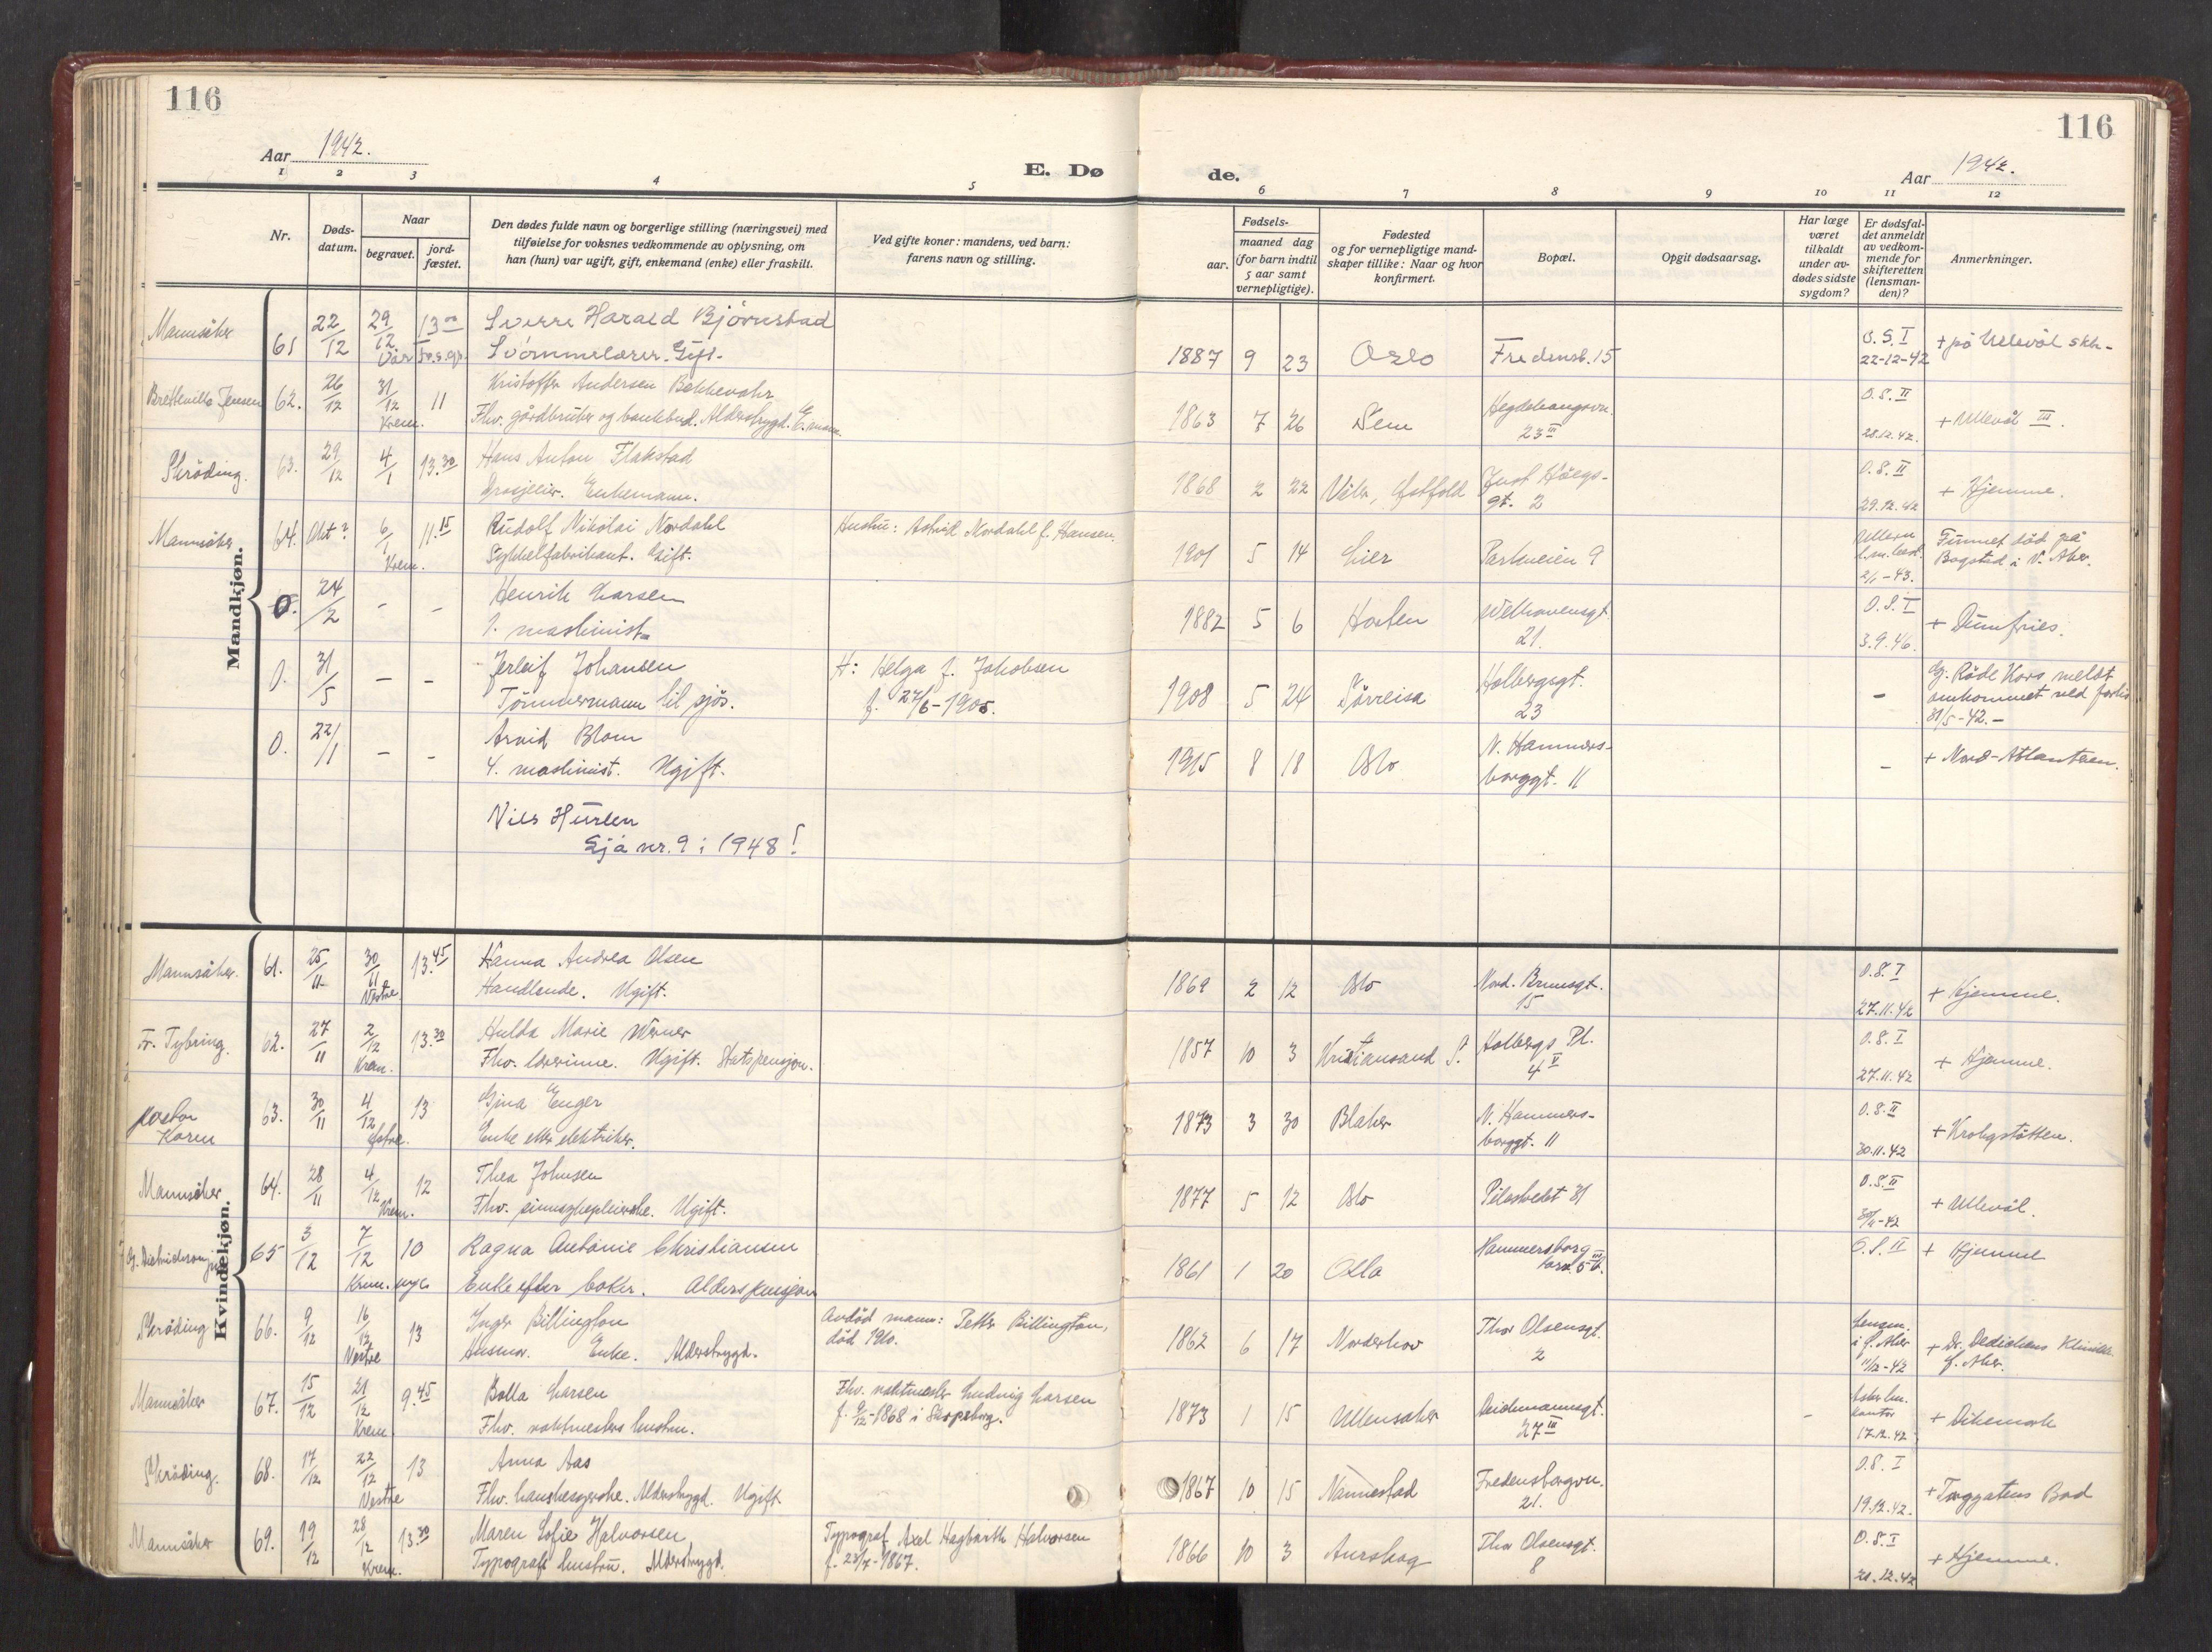 116
116
Aar 1942.
E. Dø
de.
Aar 1942.
1 2 3 4 5 6 7 8 9 10 11 12
Nr.
Døds-
datum.
Naar
begravet.
jord-
fæstet.
Den dødes fulde navn og borgerlige stilling (næringsvei) med
tilføielse for voksnes vedkommende av oplysning, om
han (hun) var ugift, gift, enkemand (enke) eller fraskilt.
Ved gifte koner: mandens, ved barn:
farens navn og stilling.
Fødsels-
aar.
maaned dag
(for barn indtil
5 aar samt
vernepligtige).
Fødested
og for vernepligtige mand-
skaper tillike: Naar og hvor
konfirmert.
Bopæl.
Opgit dødsaarsag.
Har læge
været
tilkaldt
under av-
dødes sidste
sygdom?
Er dødsfal-
det anmeldt
av vedkom-
mende for
skifteretten
(lensman-
den)?
Anmerkninger.
Mandkjøn.
Mannsåker 61 22/12 29/12 13 Sverre Harald Bjørnstad
Svømmelærer. Gift.
1887 9 23 Oslo Fredensb. 15 O.S. I 22-12-42 + på Ullevål skh-
Bretteville Jensen 62. 26/12 31/12 Krem. 11 Kristoffer Andersen Bekkevahr
Fhv. gårdbruker og bankbud. Alderstrygd. E.mann
1863 7 26 Sem Hegdehaugsvn. 23 III O.S. II 28.12.42. + Ullevål III.
Skrøding. 63. 29/12 4/1 13.30 Hans Anton Flakstad
Grosjeier. Enkemann.
1868 2 22 Våler, Østfold Just Høegs-
gt. 2 O.S. II 29.12.42 + Hjemme.
Mannsåker 64. Okt? 6/1 Krem. 11.15 Rudolf Nikolai Nordahl
Sykkelfabrikant. Gift.
Hustru: Astrid Nordahl f. Hansen.
1901 5 14 Lier Parkveien 9 Ullern 2/1-43. Funnet død på
Bogstad i V. Aker.
0. 24/2 - - Henrik Larsen
1. maskinist
1882 5 6 Horten Welhavensgt. 21. O.S. I 3.9.46. + Dumfries.
0. 31/5 - - Jerleif Johansen
Tømmermann til sjøs.
H: Helga f. Jakobsen
f. 27/6-1905.
1908 5 24 Sørreisa Holbergsgt. 23 - Røde Kors meldt
omkommet ved forlis
31/5-42.-
0. 22/1 - - Arvid Blom
4. maskinist. Ugift.
1915 8 18 Oslo N. Hammers-
borggt. 11 - + Nord-Atlanteren.
Nils Hurlen
Sjå nr. 9 i 1948!
Kvindekjøn.
Mannsåker. 61. 25/11 30/11 Vestre 13.45 Hanna Andrea Olsen
Handlende. Ugift.
1869 2 12 Oslo Nord. Brunsgt. 15 O.S. I 27.11.42 + Hjemme.
Fr. Tybring. 62. 27/11 2/12 Krem. 13.30 Hulda Marie Werner
Fhv. lærerinne. Ugift. Statspensjon.
1857 10 3 Kristiansand S. Holbergs Pl. 4 V O.S. I 27.11.42 + Hjemme.
pastor
Koren 63. 30/11 4/12 Østre. 13 Gina Enger
Enke etter elektriker.
1873 3 30 Blaker N. Hammers-
borggt. 11 O.S. II 30.11.42 + Krohgstøtten.
Mannsåker 64. 28/11 4/12 Krem. 12 Thea Johnsen
Fhv. sinnsykepleierske. Ugift.
1877 5 12 Oslo Pilestredet 31 O.S. II 30/11-42 + Ullevål.
65 3/12 7/12 Krem. nye 10 Ragna Antonie Christiansen
Enke efter baker. Alderspensjon
1861 1 20 Oslo Hammersborg
torv. 5 III O.S. II + Hjemme
Skrøding 66. 9/12 16/12 Vestre 13 Inger Billington
Husmor. Enke. Alderstrygd.
Avdød mann: Petter Billington,
død 1910.
1862 6 17 Norderhov Thor Olsensgt. 2 Lensm.
i Ø. Aker
11/12-42 + Dr. Dedichens Klinikk
Ø. Aker.
Mannsåker 67. 15/12 21/12 Krem. 9.45 Bolla Larsen
Fhv. vaktmesters hustru.
Fhv. vaktmester Ludvig Larsen
f. 9/12-1868 i Sarpsborg.
1873 1 15 Ullensaker Deichmannsgt. 27 III - Asker len.
kontor
17.12.42 + Dikemark
Skrøding. 68. 17/12 22/12 Vestre 13 Anna Aas
Fhv. hanskesyerske. Alderstrygd. Ugift
1867 10 15 Nannestad Fredensborgvn. 21. O.S. I 19.12.42. + Torggatens Bad
Mannsåker 69. 19/12 28/12 Krem. 13.30 Maren Sofie Halvorsen
Typografs hustru. Alderstrygd.
Typograf Axel Hagbarth Halvorsen
f. 23/7-1867.
1866 10 3 Aurskog Thor Olsensgt. 8 O.S. I 21.12.42 + Hjemme.